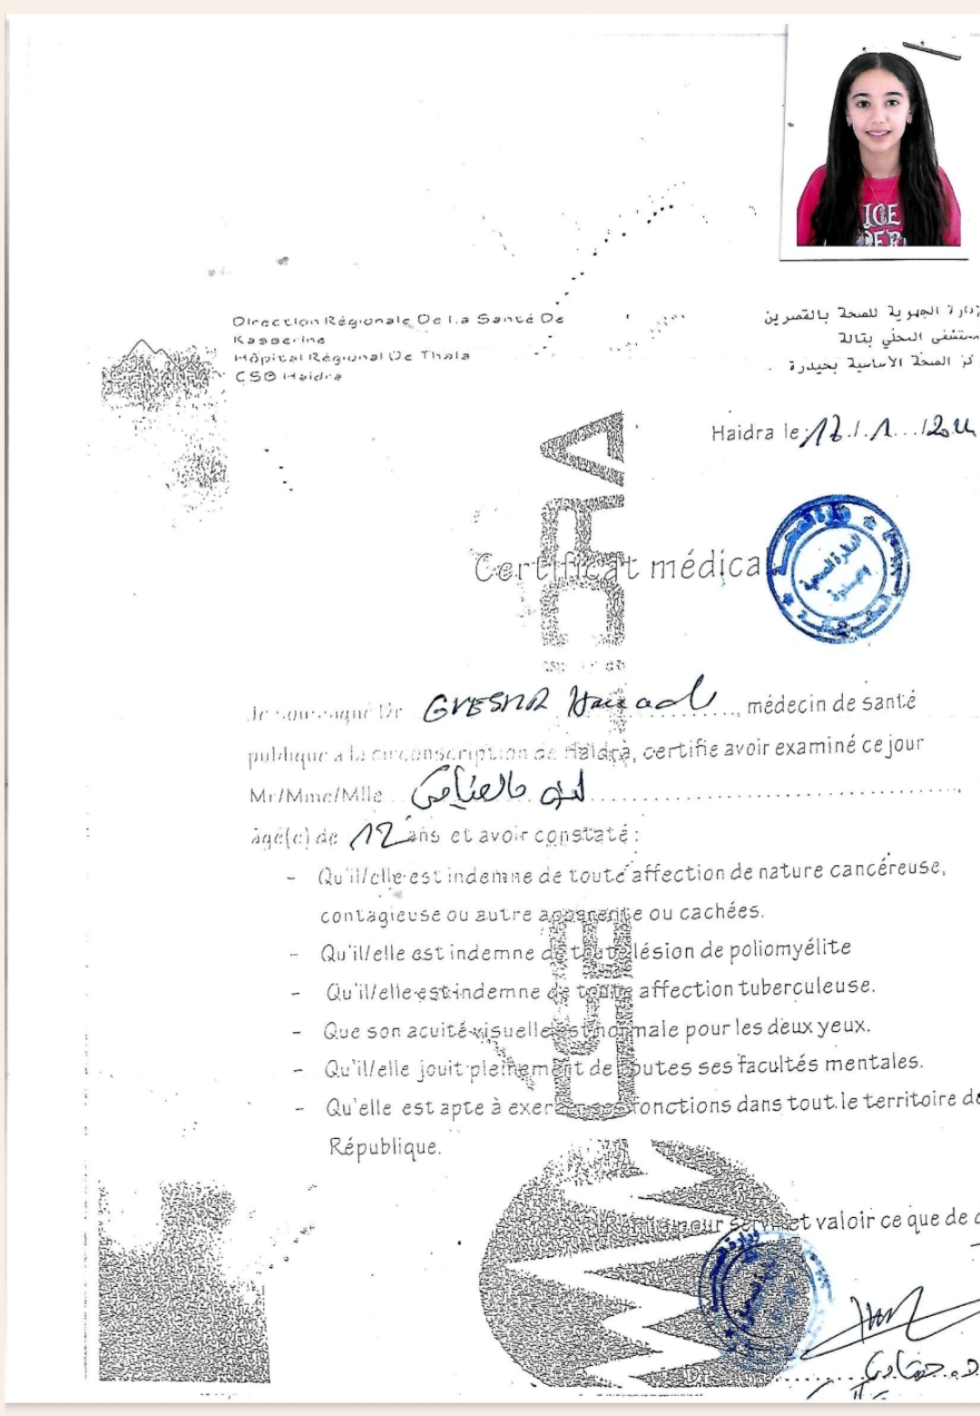 ICE
Direction Régionale De La Santé De
Kasserine
Hôpital Régional De Thala
CSB Haidra
الجهوية للصحة بالقصرين
مستشفى المحلي بتالة
الصحة الأساسية بحيدرة
Haidra le
Certificat médical
Je soussigné Dr GUESMI, médecin de santé
publique a la circonscription de Haidra, certifie avoir examiné ce jour
Mr/Mme/Mlle
âgé(e) de 12 ans et avoir constaté :
- Qu'il/elle est indemne de toute affection de nature cancéreuse,
contagieuse ou autre apparente ou cachées.
- Qu'il/elle est indemne de toute lésion de poliomyélite
- Qu'il/elle est indemne de toute affection tuberculeuse.
- Que son acuité visuelle est normale pour les deux yeux.
- Qu'il/elle jouit pleinement de toutes ses facultés mentales.
- Qu'elle est apte à exercer ses fonctions dans tout le territoire de
République.
pour servir et valoir ce que de